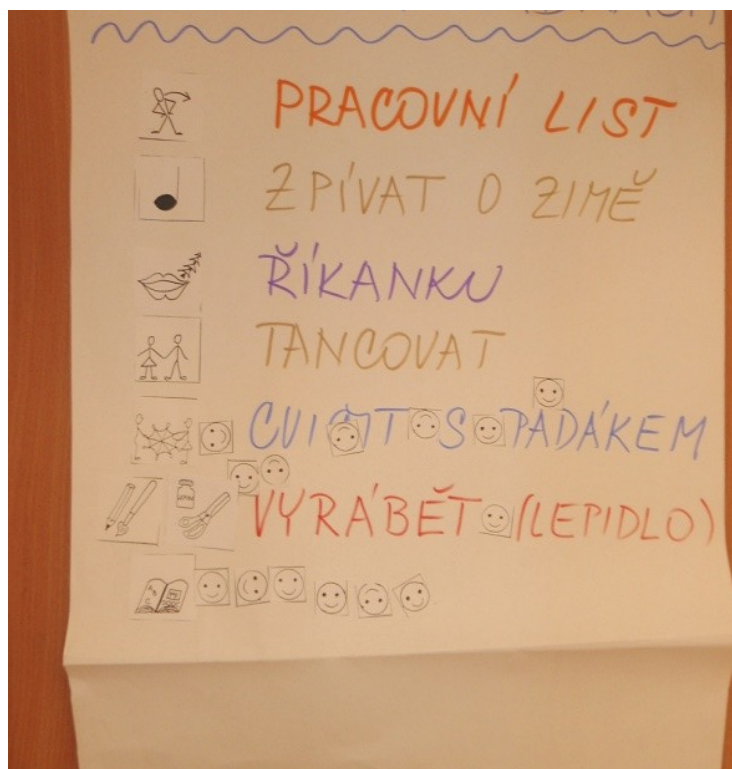 PRACOVNÍ LIST
ZPÍVAT O ZIMĚ
ŘÍKANKU
TANCOVAT
CVIČIT S PADÁKEM
VYRÁBĚT (LEPIDLO)